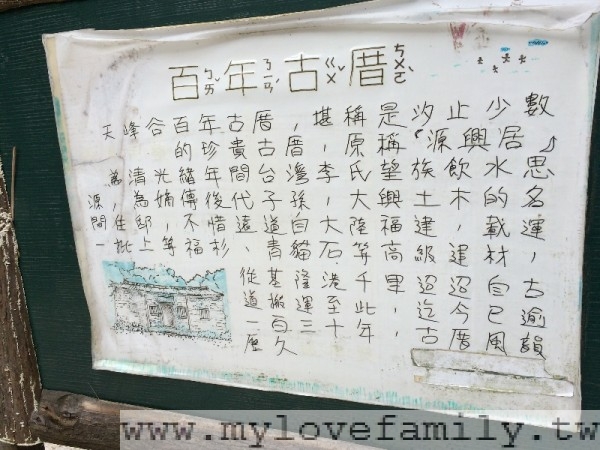 百ㄅㄞˇ年ㄋㄧㄢˊ古ㄍㄨˇ厝ㄘㄨㄛˋ
天峰谷百年古厝，堪稱是汐止少數
的珍貴古厝，原稱「源興居」
為清光緒年間台灣李氏望族飲水思
源，為嫡傳後代子孫，大興土木的名
間住邸，不惜遠道自大陸福建載運，
一批上等福杉，青貓石等高級建材，
從基隆港千里迢迢自古
道搬運至此，迄今已逾
一百三十年，古厝風韻
歷久
www.mylovefamily.tw